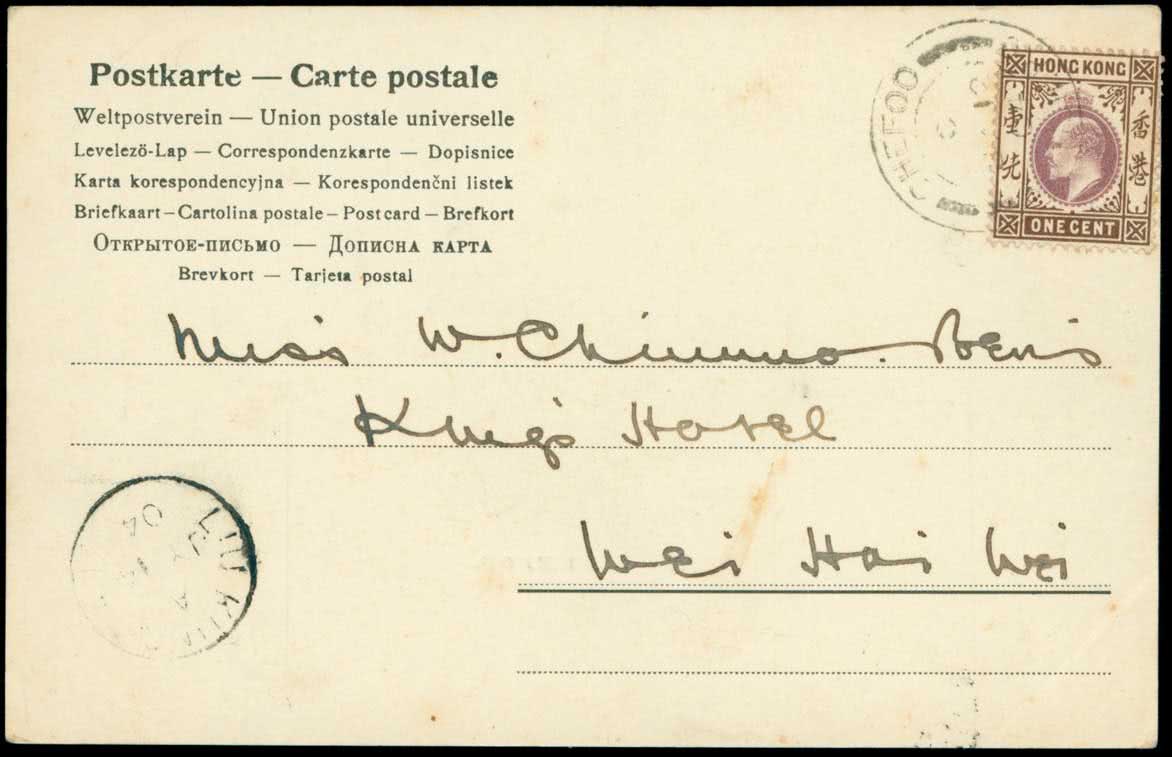 Postkarte — Carte postale
Weltpostverein — Union postale universelle
Levelező-Lap — Correspondenzkarte — Dopisnice
Karta korespondencyjna — Korespondenčni listek
Briefkaart – Cartolina postale – Post card – Brefkort
Открытое-письмо — Дописна карта
Brevkort — Tarjeta postal
CHEFOO
HONG KONG
壹先
香港
ONE CENT
Miss W. Chimmo. Bevis
King's Hotel
Wei Hai Wei
LIU KUN
04